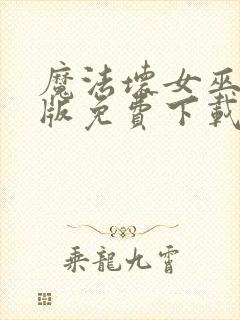 魔法壞女巫
版免費下載
乘龍九霄